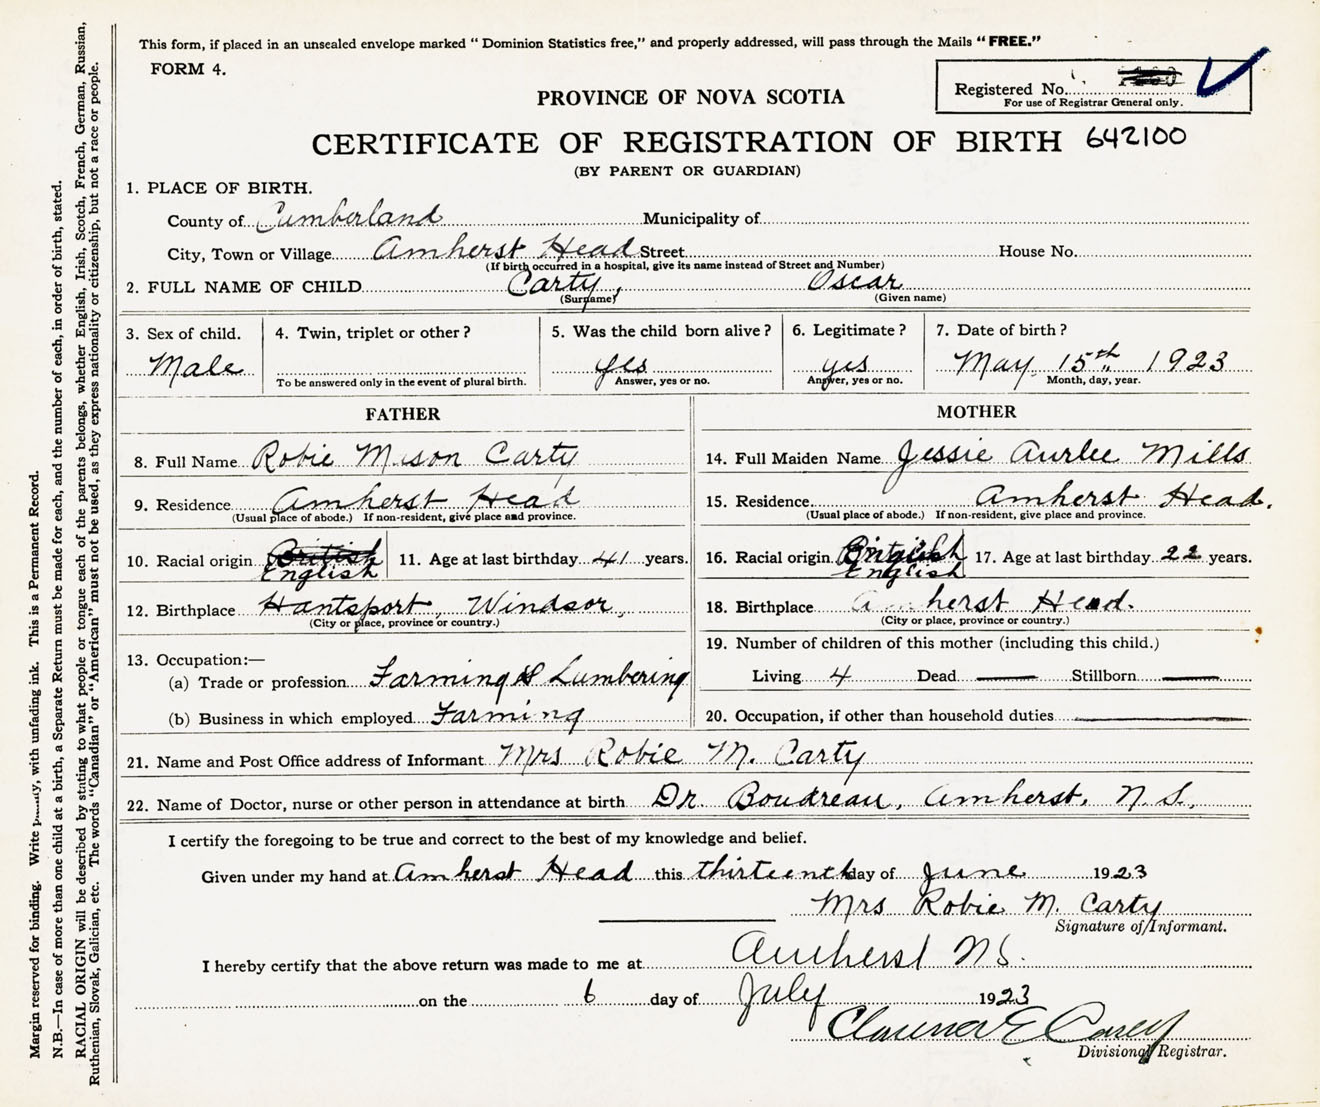 This form, if placed in an unsealed envelope marked "Dominion Statistics free," and properly addressed, will pass through the Mails "FREE."
FORM 4.
Registered No.
For use of Registrar General only.
PROVINCE OF NOVA SCOTIA
CERTIFICATE OF REGISTRATION OF BIRTH 642100
(BY PARENT OR GUARDIAN)
1. PLACE OF BIRTH.
County of Cumberland Municipality of
City, Town or Village Amherst Head Street House No.
(If birth occurred in a hospital, give its name instead of Street and Number)
2. FULL NAME OF CHILD Carty, Oscar
(Surname) (Given name)
3. Sex of child. 4. Twin, triplet or other? 5. Was the child born alive? 6. Legitimate? 7. Date of birth?
Male yes yes May 15th 1923
To be answered only in the event of plural birth. Answer, yes or no. Answer, yes or no. Month, day, year.
FATHER
8. Full Name Robie Mason Carty
9. Residence Amherst Head
(Usual place of abode.) If non-resident, give place and province.
10. Racial origin British 11. Age at last birthday 41 years.
English
12. Birthplace Hantsport, Windsor,
(City or place, province or country.)
13. Occupation:—
(a) Trade or profession Farming & Lumbering
(b) Business in which employed Farming
MOTHER
14. Full Maiden Name Jessie Aurlee Mills
15. Residence Amherst Head.
(Usual place of abode.) If non-resident, give place and province.
16. Racial origin 17. Age at last birthday 22 years.
English
18. Birthplace Amherst Head.
(City or place, province or country.)
19. Number of children of this mother (including this child.)
Living 4 Dead — Stillborn —
20. Occupation, if other than household duties —
21. Name and Post Office address of Informant Mrs Robie M. Carty
22. Name of Doctor, nurse or other person in attendance at birth Dr. Boudreau, Amherst, N.S.
I certify the foregoing to be true and correct to the best of my knowledge and belief.
Given under my hand at Amherst Head this thirteenth day of June 1923
Mrs Robie M. Carty
Signature of Informant.
I hereby certify that the above return was made to me at Amherst NS.
on the 6 day of July 1923
Clarence E Casey
Divisional Registrar.
Margin reserved for binding. Write with unfading ink. This is a Permanent Record.
N.B.—In case of more than one child at a birth, a Separate Return must be made for each, and the number of each, in order of birth, stated.
RACIAL ORIGIN will be described by stating to what people or tongue each of the parents belongs, whether English, Irish, Scotch, French, German, Russian,
Ruthenian, Slovak, Galician, etc. The words "Canadian" or "American" must not be used, as they express nationality or citizenship, but not a race or people.